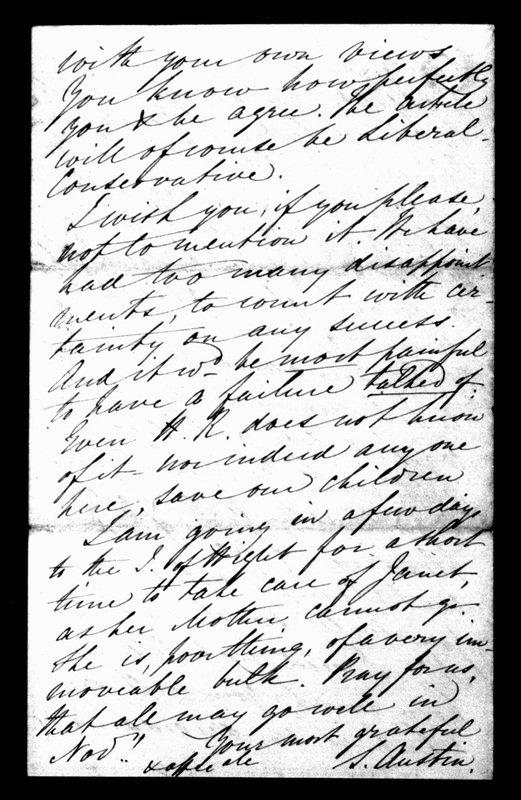 with your own views
You know how perfectly
you & he agree. The article
will of course be Liberal-
Conservative.
I wish you, if you please,
not to mention it. We have
had too many disappoint
ments, to count with cer-
tainty on any success.
And it wd. be most painful
to have a failure talked of.
Even H. R. does not know
of it - nor indeed any one
here, save our children
I am going in a few days
to the I. of Wight for a short
time to take care of Janet,
as her Mother cannot go.
She is, poor thing, of a very im-
moveable bulk. Pray for us,
that all may go well in
Novr.!
Your most grateful
& affecate
S. Austin.